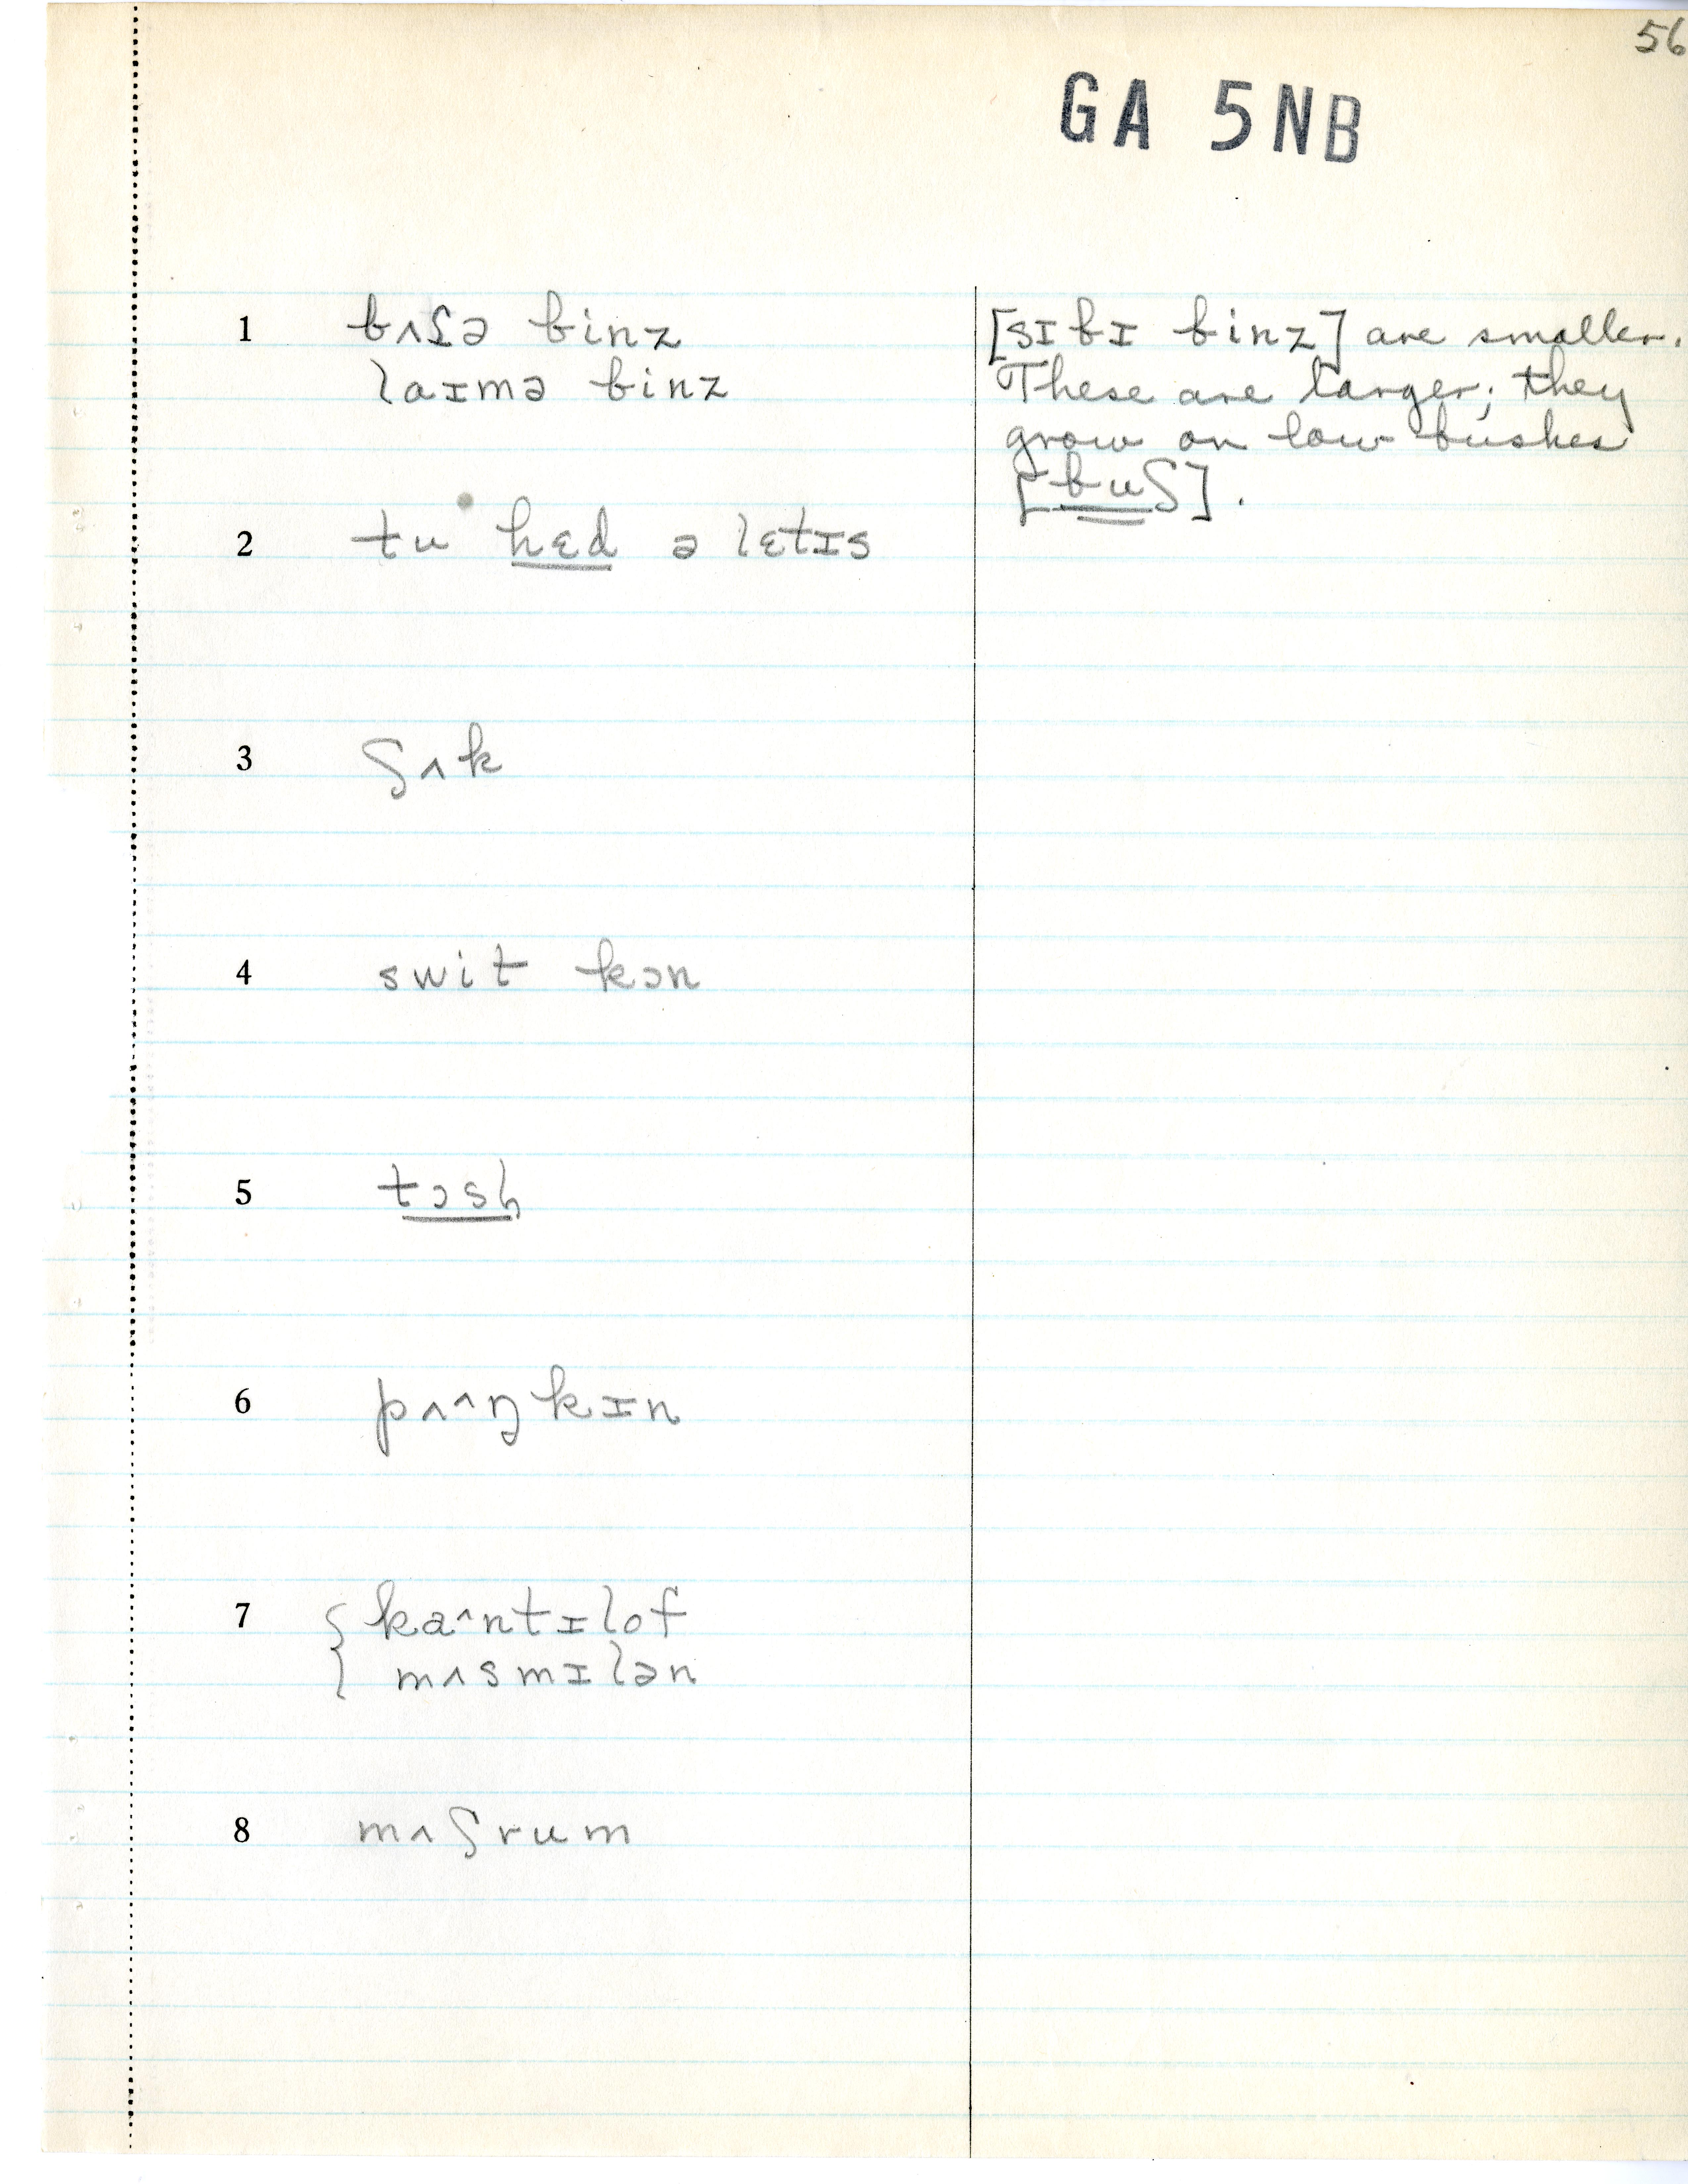 56
GA 5NB
1 bʌʃə binz
laɪmə binz
[sɪbɪ binz] are smaller.
These are larger; they
grow on low bushes
[buʃ].
2 tu hɛd ə lɛtɪs
3 ʃʌk
4 swit kɔn
5 tɔsḷ
6 pʌ^ŋkɪn
7 { ka^ntɪlof
mʌsmɪlən
8 mʌʃrum